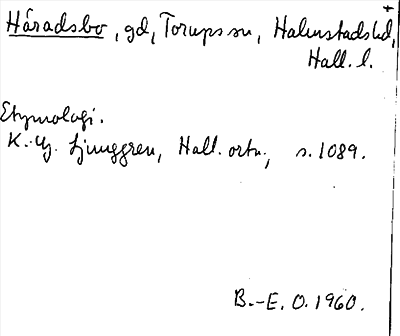 Häradsbo, gd, Torups sn, Halmstads hd,
Hall. l.
Etymologi.
K.-G. Ljunggren, Hall. ortn., s. 1089.
B.-E. O. 1960.